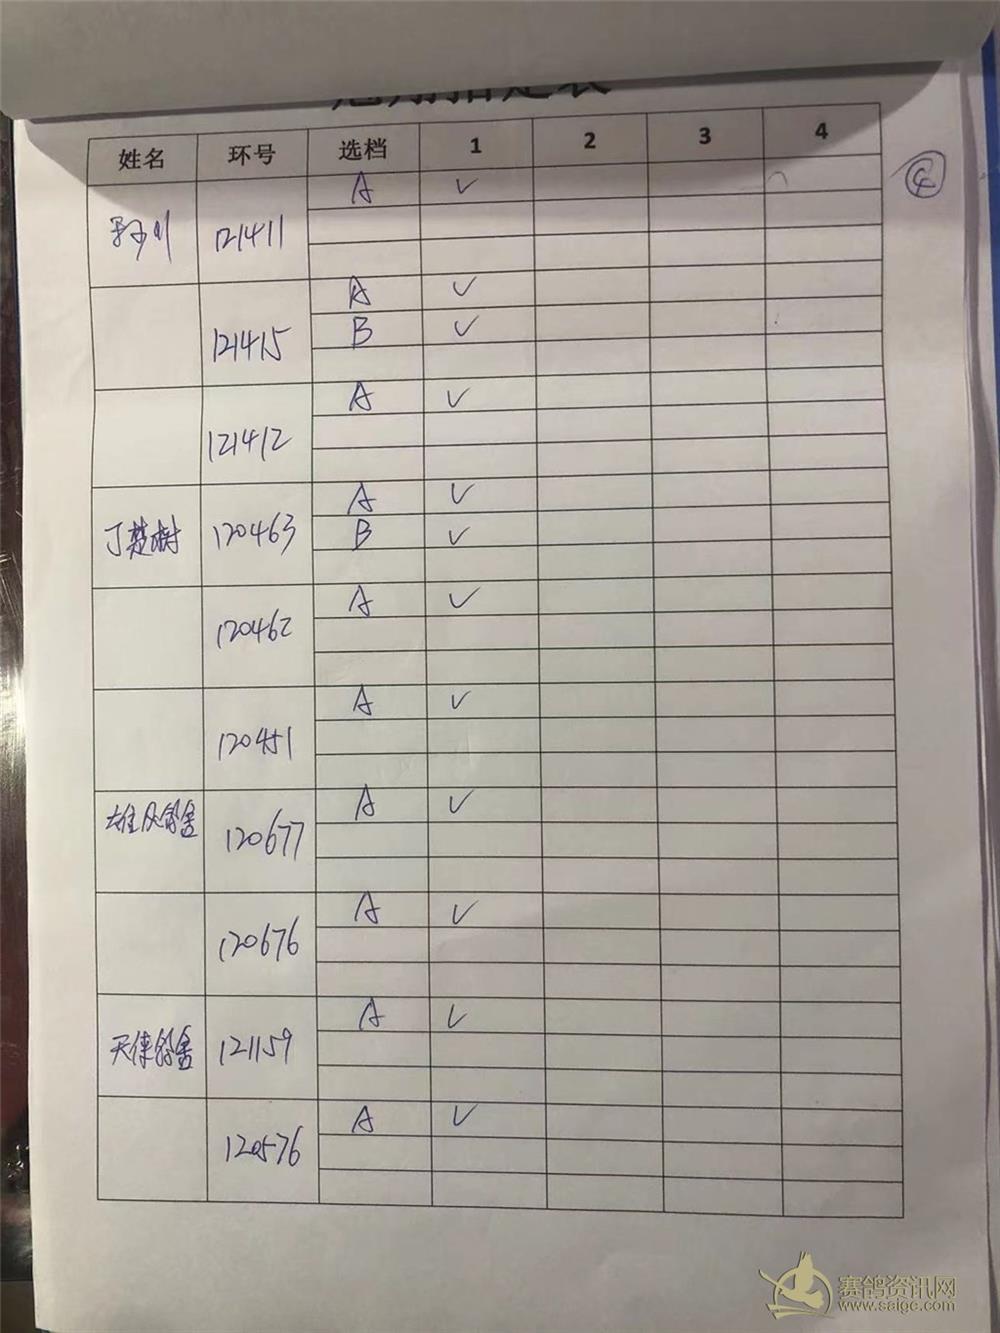 指定表
姓名 环号 选档 1 2 3 4
④
121411 A ✓
121415 A ✓
B ✓
121412 A ✓
丁楚树 120463 A ✓
B ✓
120462 A ✓
120451 A ✓
鸽舍 120677 A ✓
120676 A ✓
天侠鸽舍 121159 A ✓
120576 A ✓
赛鸽资讯网
www.saigc.com